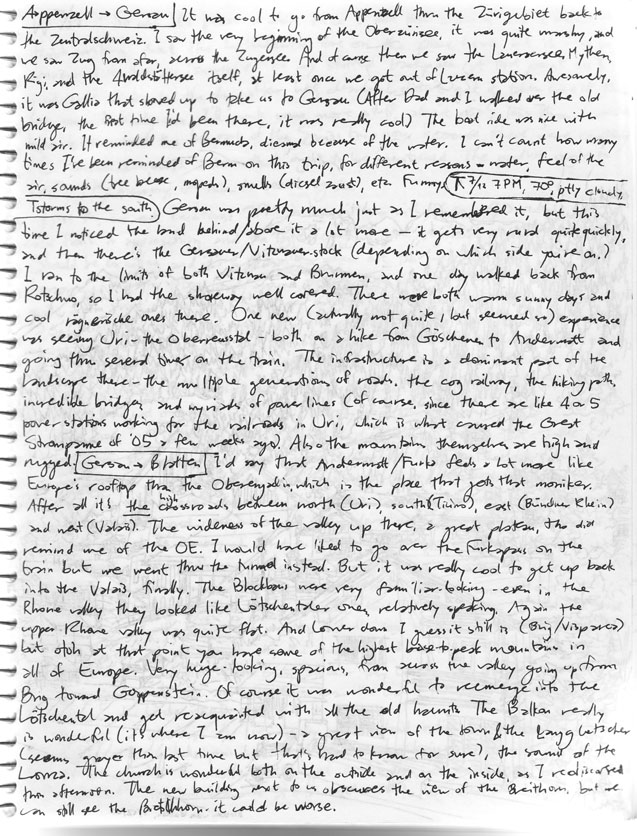 Appenzell → Gersau It was cool to go from Appenzell thru the Zürigebiet back to
the Zentralschweiz. I saw the very beginning of the Oberzürisee, it was quite marshy, and
we saw Zug from afar, across the Zugersee. And of course then we saw the Lauerzersee, Mythen,
Rigi, and the 4waldstättersee itself, at least once we got out of Luzern station. Awesomely,
it was Gallia that showed up to take us to Gersau (After Dad and I walked over the old
bridge, the first time I'd been there, it was really cool) The boat ride was nice with
mild air. It reminded me of Bermuda, because of the water. I can't count how many
times I've been reminded of Berm on this trip, for different reasons - water, feel of the
air, sounds (tree, mopeds), smells (diesel), etc. Funny. 7/12 7PM, 70°, ptly cloudy,
Tstorms to the south. Gersau was pretty much just as I remembered it, but this
time I noticed the land behind/above it a lot more - it gets very rural quite quickly,
and then there's the Gersauer/Vitznauerstock (depending on which side you're on.)
I ran to the limits of both Vitznau and Brunnen, and one day walked back from
so I had the shoreway well covered. There were both warm sunny days and
cool regnerische ones there. One new (actually not quite, but seemed so) experience
was seeing Uri - the Oberreusstal - both on a hike from Göschenen to Andermatt and
going thru several times on the train. The infrastructure is a dominant part of the
landscape there - the multiple generations of roads, the cog railway, the hiking path,
incredible bridges, and myriads of power lines (of course, since there are like 4 or 5
power stations working for the railroads in Uri, which is what caused the Great
Strompanne of '05 a few weeks ago). Also the mountains themselves are high and
rugged. Gersau → Blatten I'd say that Andermatt/Furka feels a lot more like
Europe's rooftop than the Oberengadin, which is the place that gets that moniker.
After all it's the high crossroads between north (Uri), south (Ticino), east (Bündner Rhein)
and west (Valais). The wideness of the valley up there, a great plateau, tho did
remind me of the OE. I would have liked to go over the Furkapass on the
train but we went thru the tunnel instead. But it was really cool to get up back
into the Valais, finally. The Blockbaus were very familiar-looking - even in the
Rhone valley they looked like Lötschentaler ones, relatively speaking. Again the
upper Rhone valley was quite flat. And lower down I guess it still is (Brig/Visp area)
but otoh at that point you have some of the highest base-to-peak mountains in
all of Europe. Very huge-looking, spacious, from across the valley going up from
Brig toward Goppenstein. Of course it was wonderful to reemerge into the
Lötschental and get reacquainted with all the old haunts. The Balkon really
is wonderful (it's where I am now) - a great view of the town & the Langgletscher
(seems grayer than last time but that's hard to know for sure), the sound of the
Lonza. The church is wonderful both on the outside and on the inside, as I rediscovered
this afternoon. The new building next to us obscures the view of the Breithorn, but we
can still see the Bietschhorn - it could be worse.